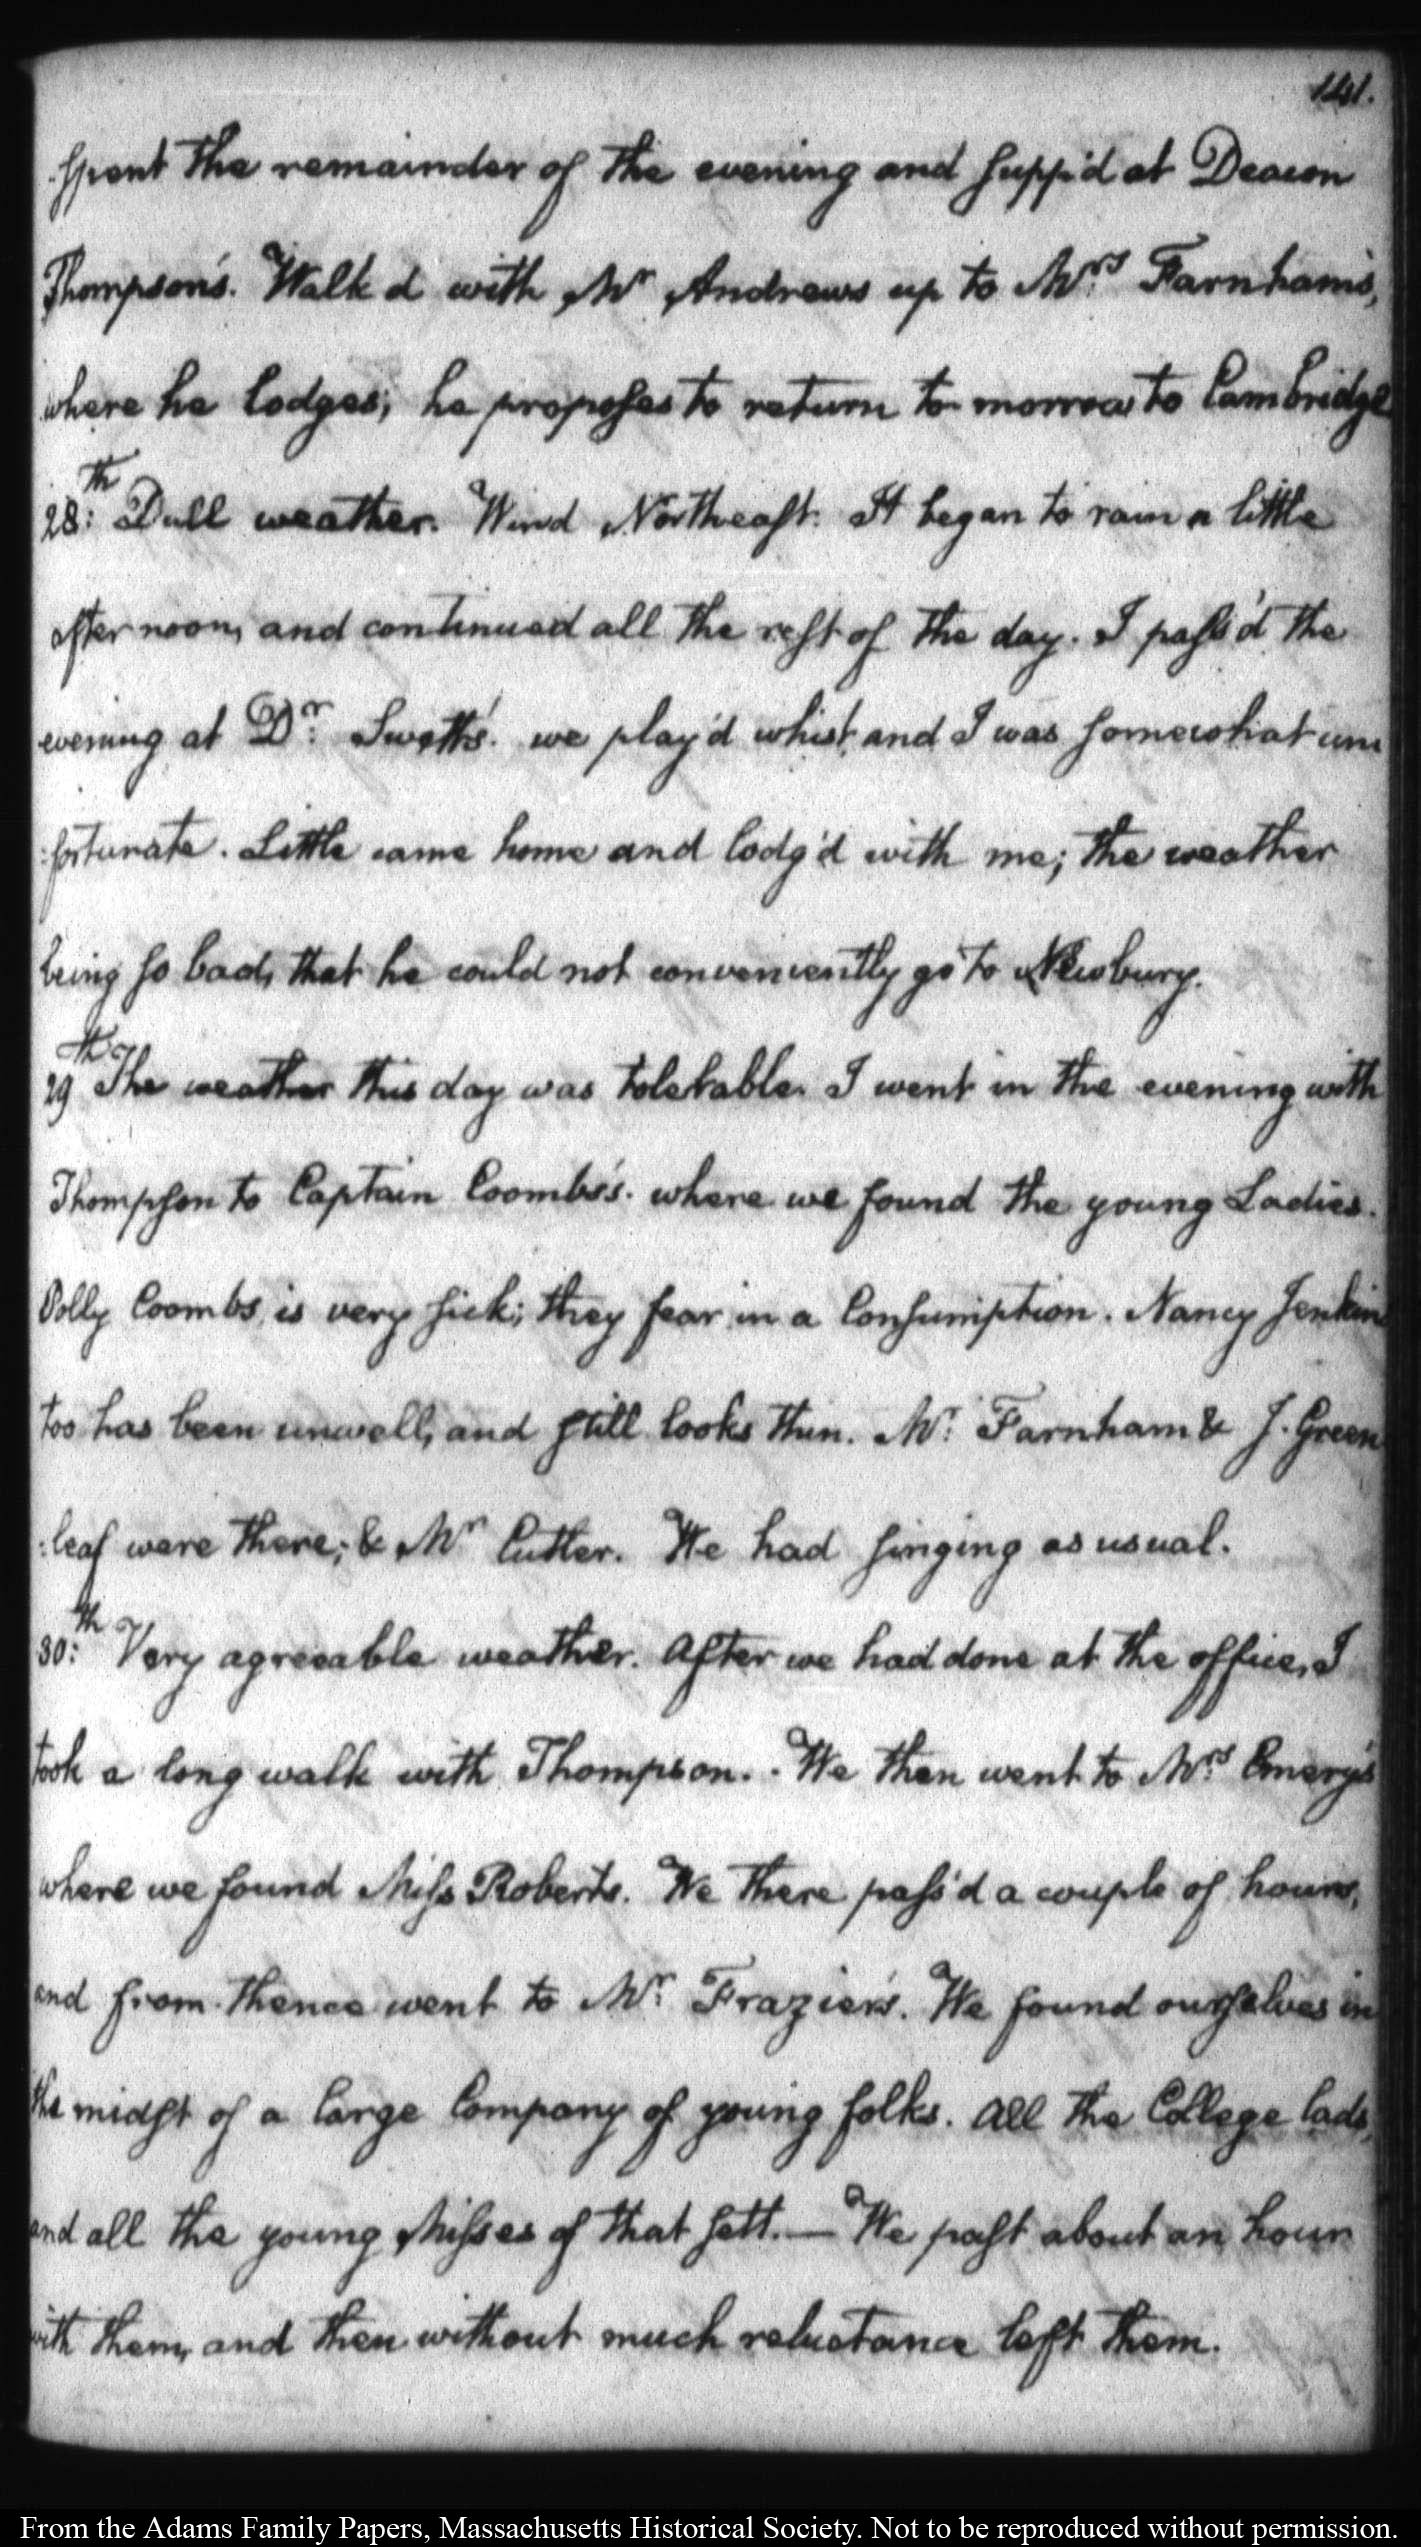 141.
spent the remainder of the evening and supp'd at Deacon
Thompson's. Walk'd with Mr. Andrews up to Mrs. Farnham's,
where he lodges; he proposes to return to-morrow to Cambridge
28:th Dull weather. Wind Northeast. It began to rain a little
after noon, and continued all the rest of the day. I pass'd the
evening at Dr. Swett's. we play'd whist, and I was somewhat un
:fortunate. Little came home and lodg'd with me; the weather
being so bad, that he could not conveniently go to Newbury.
29th The weather this day was tolerable. I went in the evening with
Thompson to Captain Coombs's. where we found the young Ladies.
Polly Coombs, is very sick; they fear in a Consumption. Nancy Jenkins
too has been unwell, and still looks thin. Mr. Farnham & J. Green
:leaf were there; & Mr Cutler. We had singing as usual.
30:th Very agreeable weather. After we had done at the office, I
took a long walk with Thompson. We then went to Mrs. Emery's
where we found Miss Roberts. We there pass'd a couple of hours,
and from thence went to Mr. Frazier's. We found ourselves in
the midst of a large Company of young folks. All the College lads,
and all the young Misses of that sett. — We past about an hour
with them, and then without much reluctance left them.
From the Adams Family Papers, Massachusetts Historical Society. Not to be reproduced without permission.